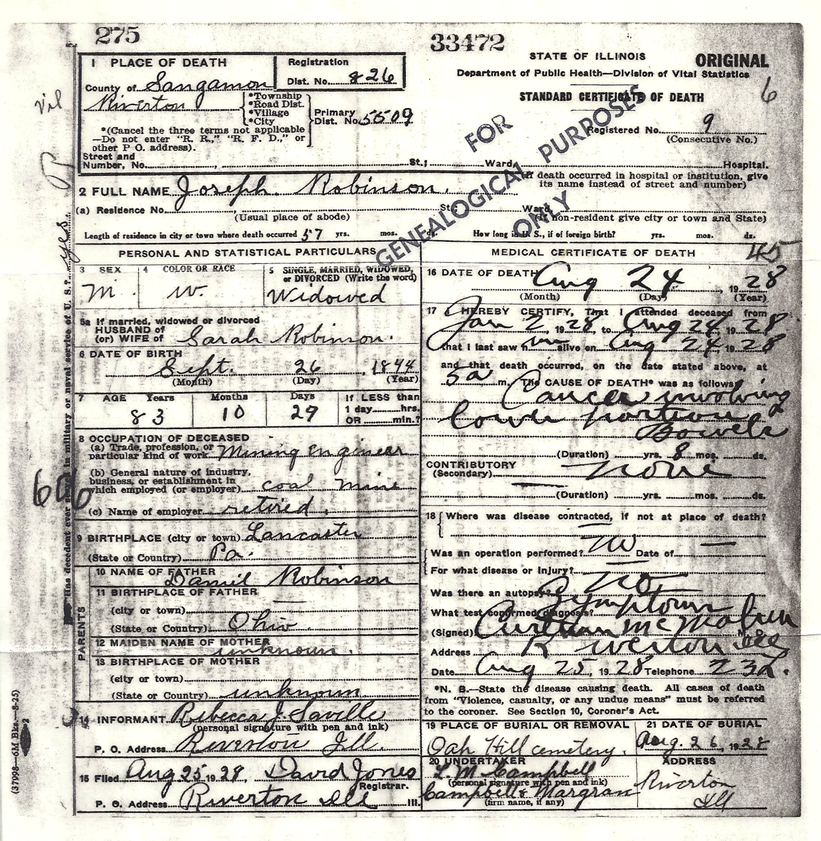 275
33472
STATE OF ILLINOIS ORIGINAL
Department of Public Health—Division of Vital Statistics
STANDARD CERTIFICATE OF DEATH
6
Registered No. 9
(Consecutive No.)
1 PLACE OF DEATH
Registration Dist. No. 826
County of Sangamon
Riverton
*Township
*Road Dist.
*Village
*City
Primary Dist. No. 5509
*(Cancel the three terms not applicable
—Do not enter "R. R.," "R. F. D.," or
other P O. address).
Street and
Number, No. St.; Ward, Hospital.
(If death occurred in hospital or institution, give
its name instead of street and number)
FOR GENEALOGICAL PURPOSES ONLY
2 FULL NAME Joseph Robinson.
(a) Residence No. St., Ward,
(Usual place of abode) (If non-resident give city or town and State)
Length of residence in city or town where death occurred 57 yrs. mos. ds. How long in U. S., if of foreign birth? yrs. mos. ds.
PERSONAL AND STATISTICAL PARTICULARS
3 SEX 4 COLOR OR RACE 5 SINGLE, MARRIED, WIDOWED, or DIVORCED (Write the word)
M. W. Widowed
5a If married, widowed or divorced
HUSBAND of
(or) WIFE of Sarah Robinson.
6 DATE OF BIRTH
Sept. 26 1844
(Month) (Day) (Year)
7 AGE Years Months Days If LESS than
1 day hrs.
OR min.?
83 10 29
8 OCCUPATION OF DECEASED
(a) Trade, profession, or
particular kind of work Mining Engineer
(b) General nature of industry,
business, or establishment in
which employed (or employer) coal mine
(c) Name of employer retired.
9 BIRTHPLACE (city or town) Lancaster
(State or Country) Pa.
PARENTS
10 NAME OF FATHER
Daniel Robinson
11 BIRTHPLACE OF FATHER
(city or town)
(State or Country) Ohio
12 MAIDEN NAME OF MOTHER
unknown.
13 BIRTHPLACE OF MOTHER
(city or town)
(State or Country) unknown
14 INFORMANT Rebecca J. Saville
(personal signature with pen and ink)
P. O. Address Riverton Ill.
15 Filed Aug 25, 1928, David Jones
Registrar.
P. O. Address Riverton Ill Ill.
MEDICAL CERTIFICATE OF DEATH
45
16 DATE OF DEATH Aug 24, 1928
(Month) (Day) (Year)
17 I HEREBY CERTIFY, That I attended deceased from
Jan 2, 1928, to Aug 24, 1928
that I last saw him alive on Aug 24 1928
and that death occurred, on the date stated above, at
5a m. The CAUSE OF DEATH* was as follows:
Cancer involving
lower portion
Bowels
(Duration) yrs. 8 mos. ds.
CONTRIBUTORY none
(Secondary)
(Duration) yrs. mos. ds.
18 Where was disease contracted, if not at place of death?
Was an operation performed? no Date of —
For what disease or injury? —
Was there an autopsy? no
What test confirmed diagnosis? Symptoms
(Signed) McMahon M. D.
Address Riverton Ill
Date Aug 25, 1928 Telephone 232.
*N. B.—State the disease causing death. All cases of death
from "Violence, casualty, or any undue means" must be referred
to the coroner. See Section 10, Coroner's Act.
19 PLACE OF BURIAL OR REMOVAL 21 DATE OF BURIAL
Oak Hill cemetery. Aug. 26, 1928
20 UNDERTAKER ADDRESS
L. M. Campbell Riverton
(personal signature with pen and ink)
Campbell & Margran Ill
(firm name, if any)
vil
yes
Has decedent ever in military or naval service of U. S.?
(37098—6M Bks.—8-25)
2